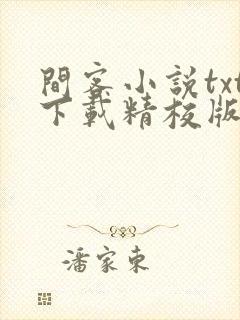 間客小説txt
下載精校版
潘家東